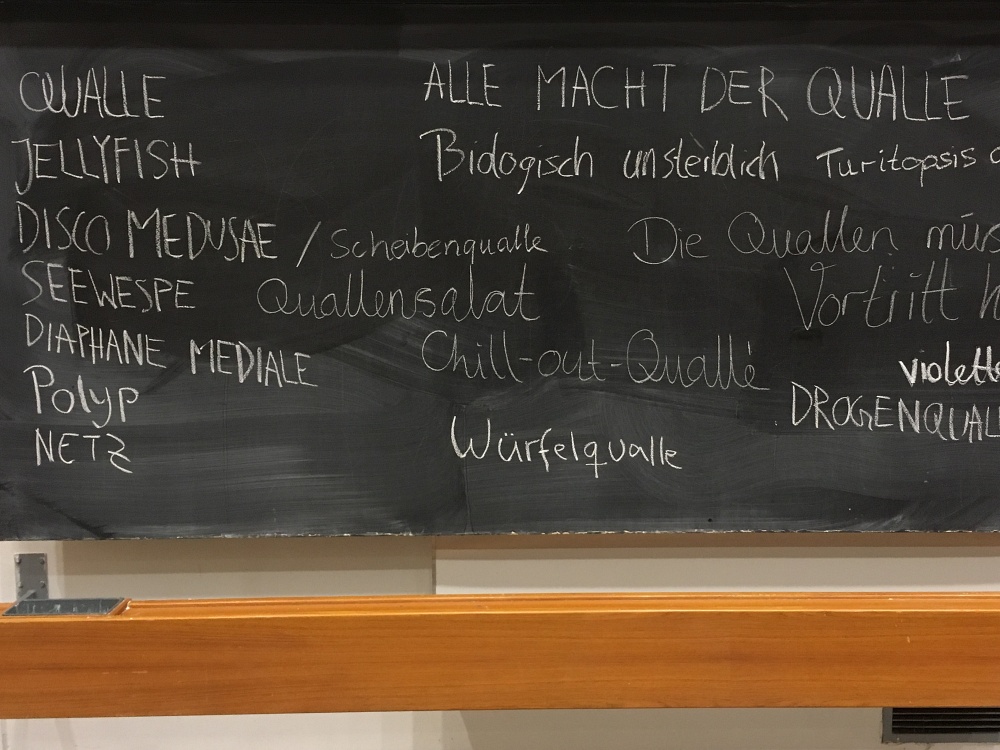 QUALLE
JELLYFISH
DISCO MEDUSAE / Scheibenqualle
SEEWESPE
Quallensalat
DIAPHANE MEDIALE
Polyp
NETZ
ALLE MACHT DER QUALLE
Biologisch unsterblich Turitopsis
Die Quallen müs
Vortritt h
Chill-out-Qualle
violette
DROGENQUAL
Würfelqualle